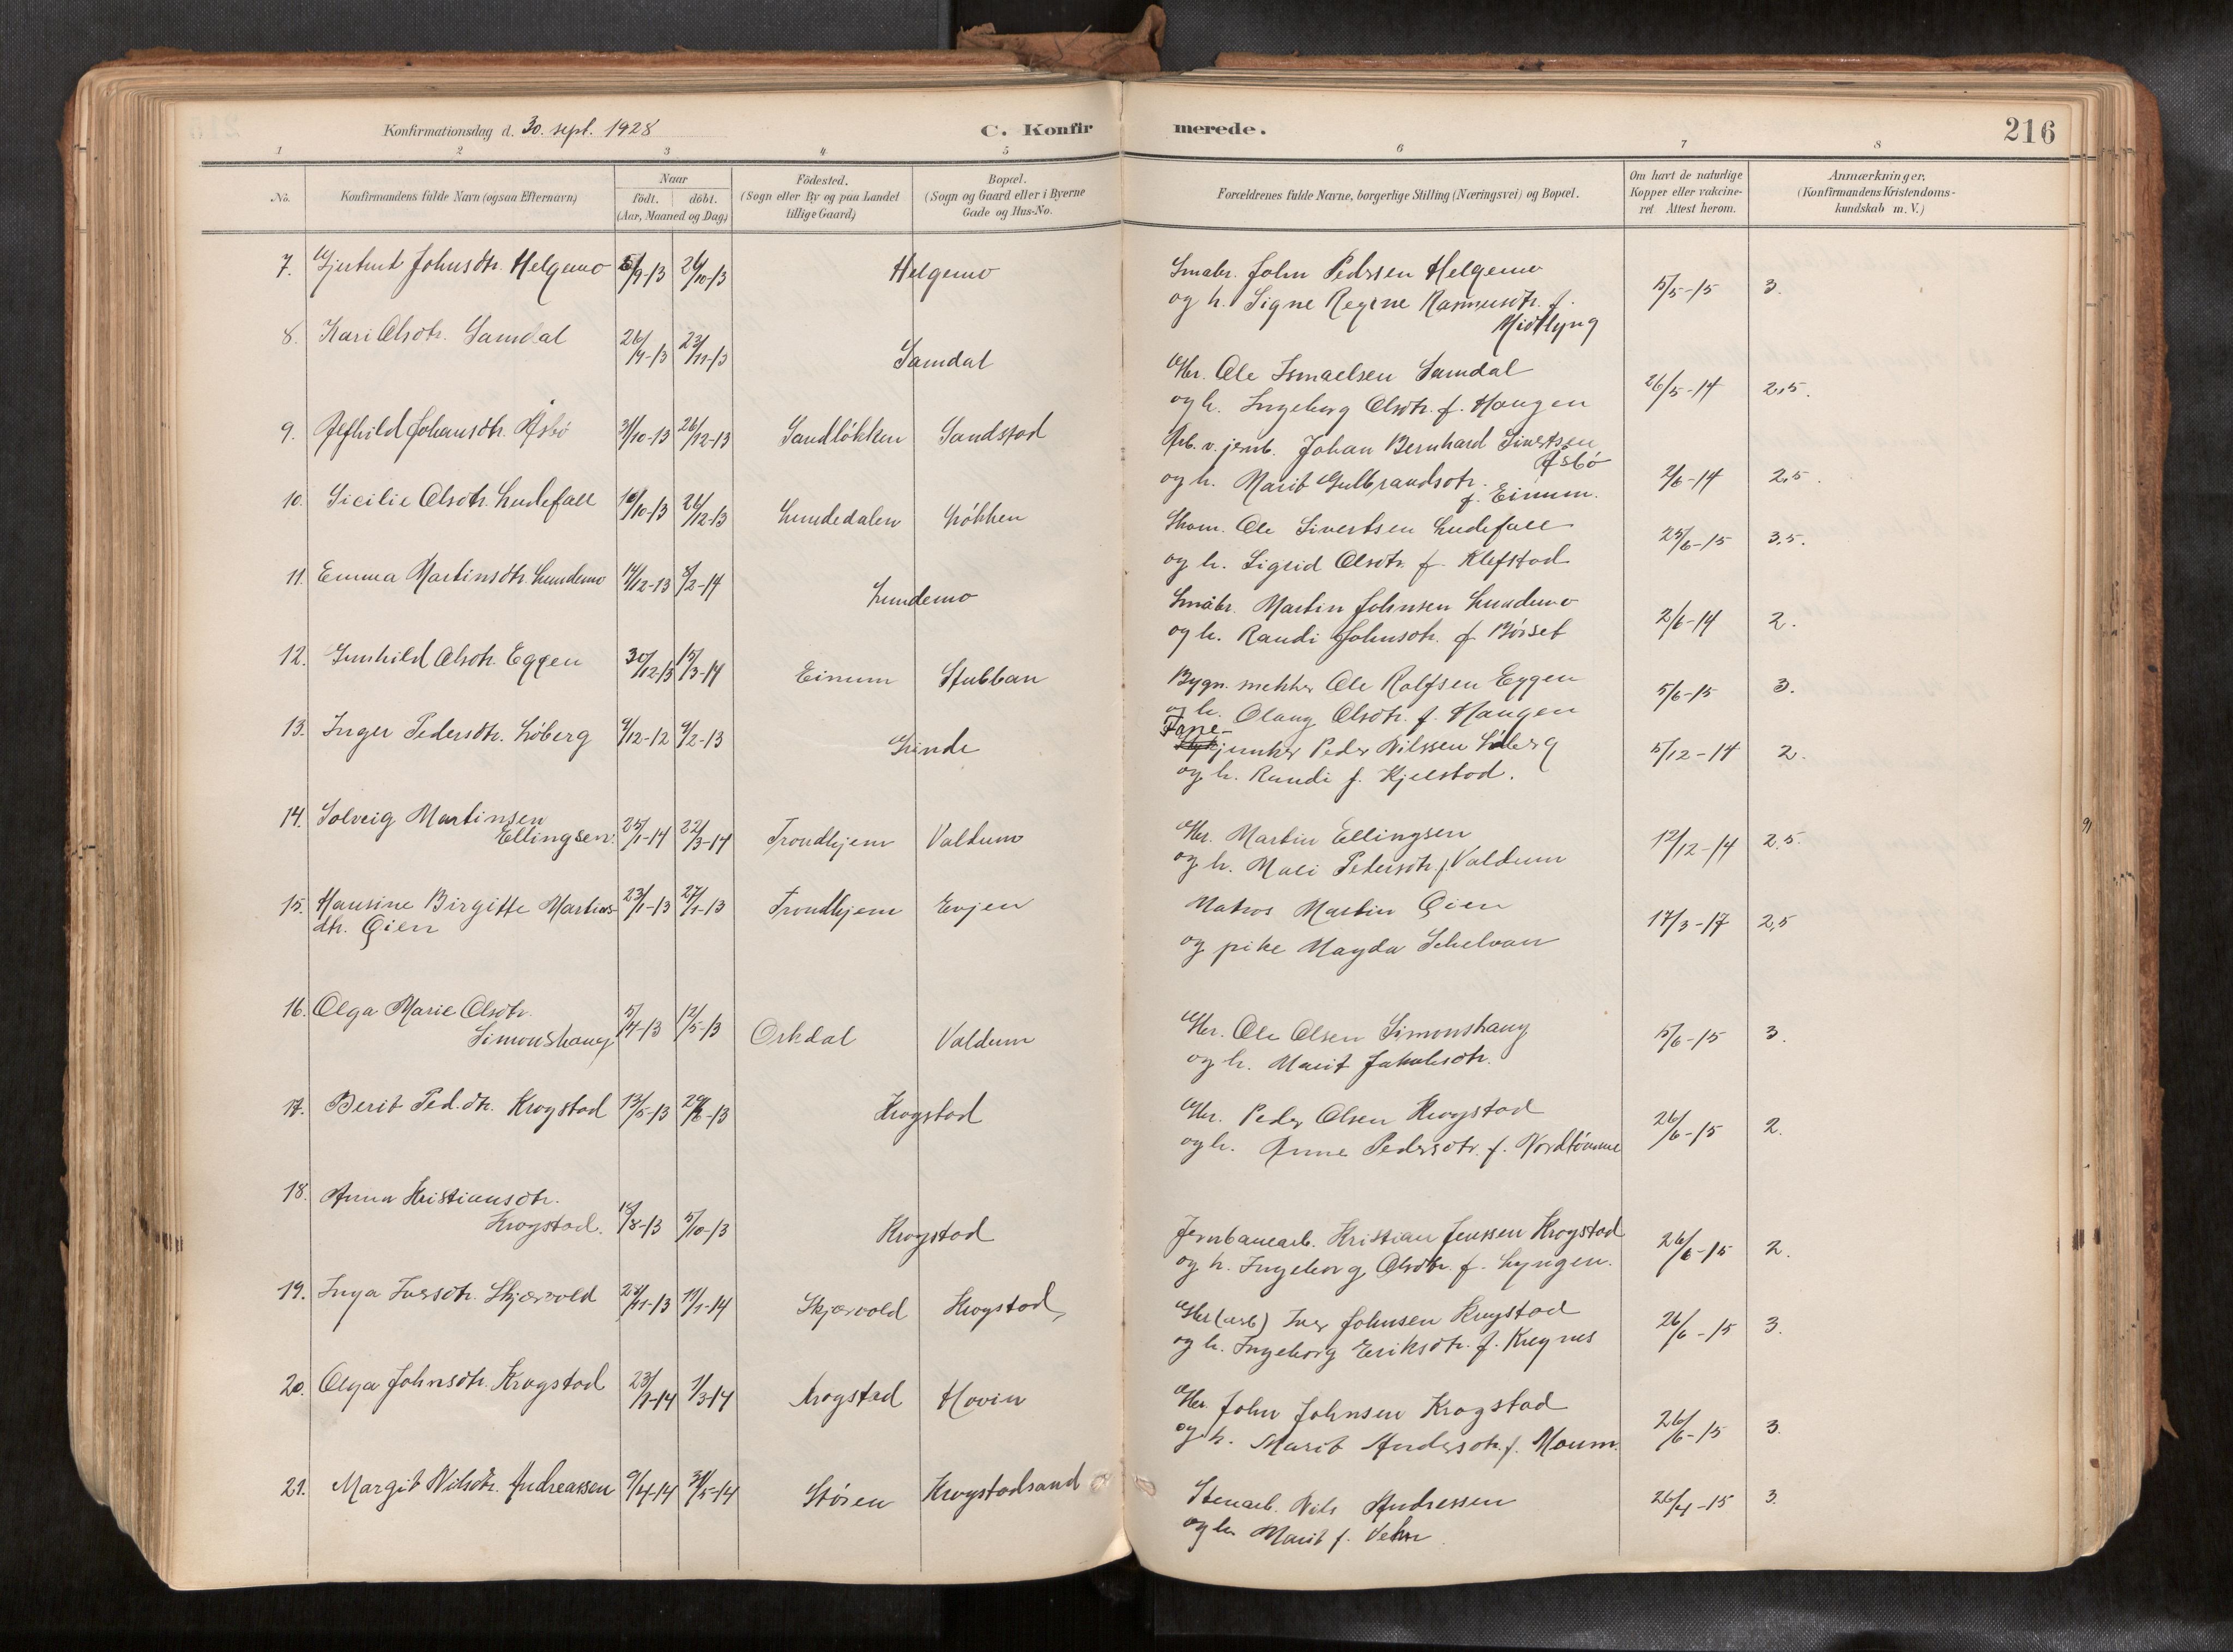 Konfirmationsdag d. 30. sept. 1928
C. Konfirmerede.
216
1 2 3 4 5 6 7 8
No.
Konfirmandens fulde Navn (ogsaa Efternavn)
Naar
födt. döbt.
(Aar, Maaned og Dag)
Födested.
(Sogn eller By og paa Landet
tillige Gaard)
Bopæl.
(Sogn og Gaard eller i Byerne
Gade og Hus-No.
Forældrenes fulde Navne, borgerlige Stilling (Næringsvei) og Bopæl.
Om havt de naturlige
Kopper eller vakcine-
ret Attest herom.
Anmærkninger,
(Konfirmandens Kristendoms-
kundskab m. V.)
7. Gjertrut Johnsdtr. Helgemo 5/9-13 26/10-13 Helgemo
Smabr. John Pedersen Helgemo
og h. Signe Regine Rasmusdtr. f.
Midtlyng
15/5-15 3.
8. Kari Olsdtr. Samdal 26/9-13 23/11-13 Samdal
Gbr. Ole Ismaelsen Samdal
og h. Ingeborg Olsdtr. f. Haugen
26/5-14 2,5.
9. Alfhild Johansdtr. Åsbö 31/10-13 26/12-13 Sandlökken Sandstad
Arb. v. jernb. Johan Bernhard Sivertsen
Åsbö
og h. Marit Gulbrandsdtr.
f. Einum.
2/6-14 2,5.
10. Sicilie Olsdtr. Ludefall 10/10-13 26/12-13 Lundedalen Lökken
Skom. Ole Sivertsen Ludefall
og h. Sigrid Olsdtr. f. Klefstad
25/6-15 3,5.
11. Emma Martinsdtr. Lundemo 14/12-13 8/2-14 Lundemo
Småbr. Martin Johnsen Lundemo
og h. Randi Johnsdtr. f. Börset
2/6-14 2.
12. Gunhild Olsdtr. Eggen 30/12-13 15/3-14 Einum Stubban
Bygn. snekker Ole Rolfsen Eggen
og h. Olaug Olsdtr. f. Haugen
5/6-15 3.
13. Inger Pedersdtr. Löberg 9/12-12 9/2-13 Grinde
Fane-
junker Peder Nilssen Löberg
og h. Randi f. Kjelstad.
5/12-14 2.
14. Solveig Martinsen
Ellingsen. 25/1-14 22/3-14 Trondhjem Valdum
Gbr. Martin Ellingsen
og h. Mali Pedersdtr. f. Valdum
12/12-14 2,5.
15. Hansine Birgitte Martins-
dtr. Öien 23/1-13 27/1-13 Trondhjem Evjen
Matros Martin Öien
og pike Magda Schelvan
17/3-17 2,5
16. Olga Marie Olsdtr.
Simonshaug 5/4-13 12/5-13 Orkdal Valdum
Gbr. Ole Olsen Simonshaug
og h. Marit Jakobsdtr.
5/6-15 3.
17. Berit Ped.dtr. Krogstad 13/5-13 29/6-13 Krogstad
Gbr. Peder Olsen Krogstad
og h. Anne Pedersdtr. f. Nordtömme
26/6-15 2.
18. Anna Kristiansdtr.
Krogstad. 18/8-13 5/10-13 Krogstad
Jernbanearb. Kristian Jenssen Krogstad
og h. Ingeborg Olsdtr. f. Lyngen.
26/6-15 2.
19. Inga Iversdtr. Skjærvold 25/11-13 11/1-14 Skjærvold Krogstad
Gbr (arb) Iver Johnsen Krogstad
og h. Ingeborg Eriksdtr. f. Kregnes
26/6-15 3.
20. Olga Johnsdtr. Krogstad 23/1-14 1/3-14 Krogstad Hovin
Gbr. John Johnsen Krogstad
og h. Marit Andersdtr. f. Moum.
26/6-15 3.
21. Margit Nilsdtr. Andreassen 9/4-14 31/5-14 Stören Krogstadsand
Stenarb. Nils Andressen
og h. Marit f. Vehn
26/4-15 3.